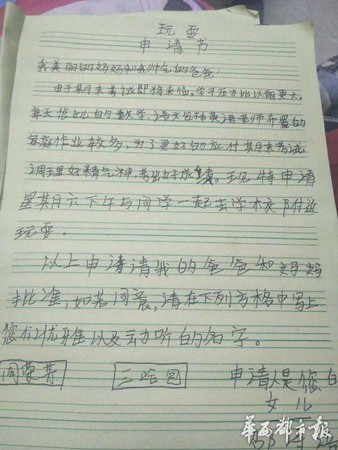 玩耍
申请书
我美丽的妈妈和我帅气的爸爸
由于期末考试即将来临。学习压力比以前更大。
每天您女儿的数学,语文包括英语老师布置的
家庭作业较多,为了更好的应付期末考试
调理好精气神,考出好成绩。现特申请
星期六下午与同学一起去学校附近
玩耍。
以上申请请我的爸爸和妈妈
批准,如若同意,请在下列方格中写上
您们优雅以及动听的名字。
三哈包
申请人是您的
女儿
华西都市报